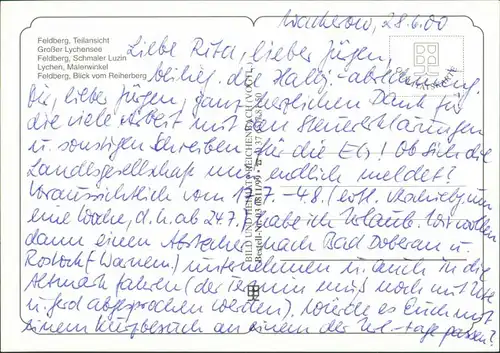 Wacherow, 28.6.00
Feldberg, Teilansicht
Großer Lychensee
Feldberg, Schmaler Luzin
Lychen, Malerwinkel
Feldberg, Blick vom Reiherberg
Liebe Rita, lieber Jürgen,
beilieg. die Halbj.-abrechnung.
Dir, lieber Jürgen, ganz herzlichen Dank für
die viele Arbeit mit den Steuererklärungen
u. sonstigen Schreiben für die EG! Ob sich die
Landesgesellschaft nun endlich meldet?
Voraussichtlich vom 17.7. - 4.8. (evtl.
eine Woche, d.h. ab 24.7.) habe ich Urlaub. Wir wollen
dann einen Abstecher nach Bad Doberan u.
Rostock (- Warnem.) unternehmen u. auch in die
Altmark fahren (der Termin muß noch mit Ute
u. Gerd abgesprochen werden). Würde es Euch mit
einem Kurzbesuch an einem der Url.-tage passen?
BILD UND HEIMAT REICHENBACH (VOGTL)